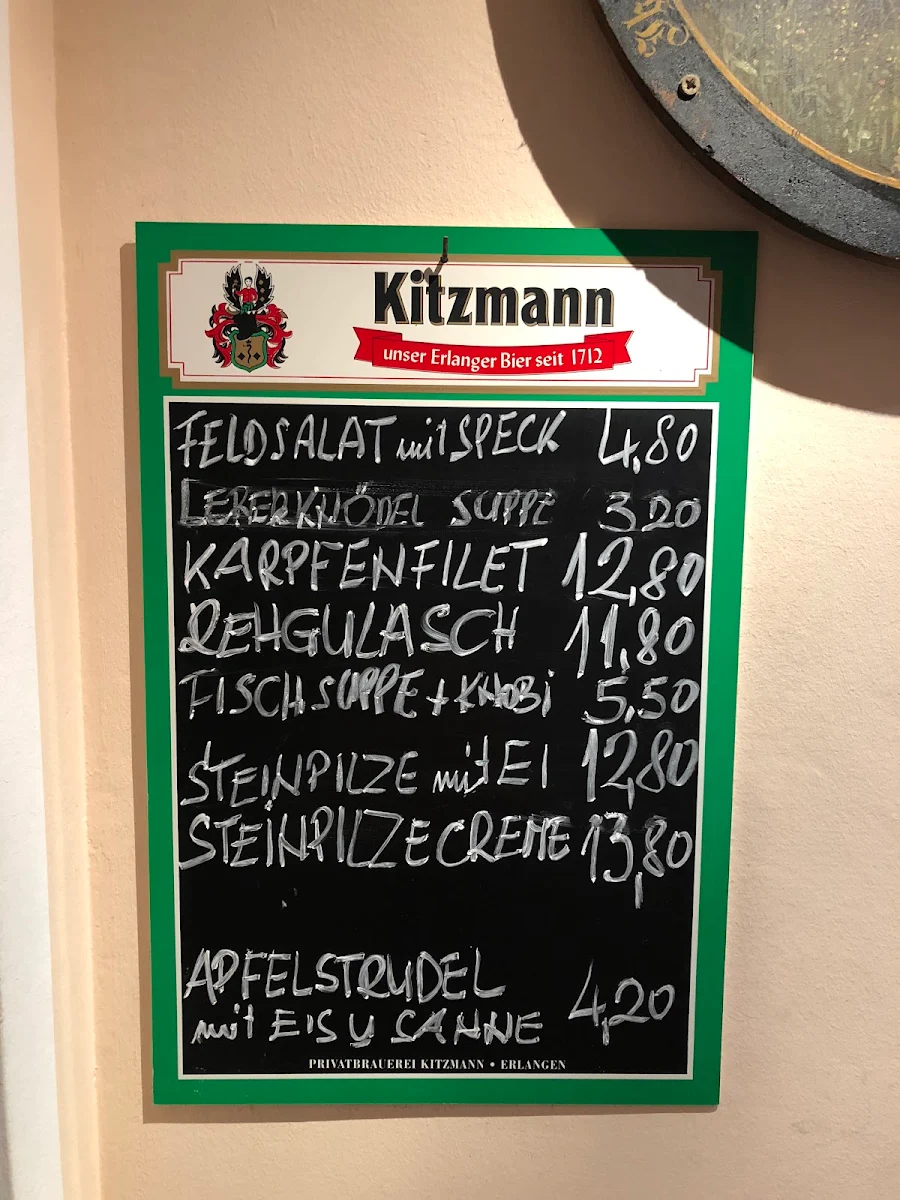 Kitzmann
unser Erlanger Bier seit 1712
FELDSALAT mit SPECK 4,80
LEBERKNÖDEL SUPPE 3 20
KARPFENFILET 12,80
REHGULASCH 11,80
FISCHSUPPE + KNOBi 5,50
STEINPILZE mit EI 12,80
STEINPILZECREME 13,80
APFELSTRUDEL
mit EIS U SAHNE 4,20
PRIVATBRAUEREI KITZMANN • ERLANGEN